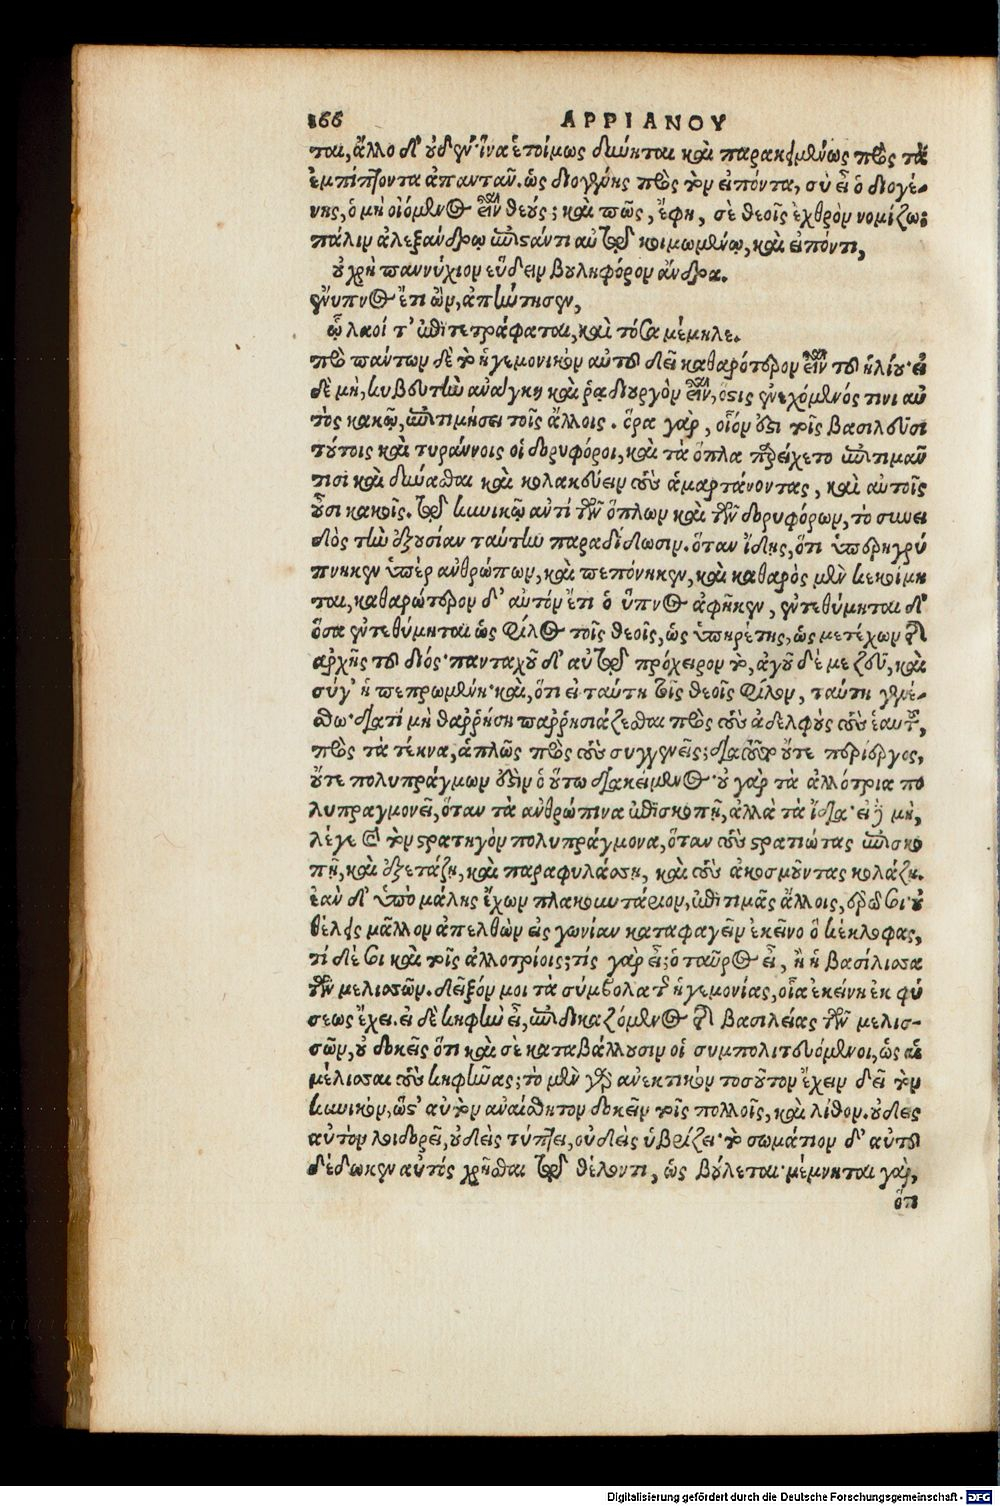 166 ΑΡΡΙΑΝΟΥ
ται, ἄλλο δ' οὐδέν· ἵνα ἑτοίμως δύνηται καὶ παρακειμένως πρὸς τὰ
ἐμπίπτοντα ἀπαντᾶν. ὡς διογένης πρὸς τὸν εἰπόντα, σὺ εἶ ὁ διογέ-
νης, ὁ μὴ οἰόμενος εἶναι θεούς; καὶ πῶς, ἔφη, σὲ θεοῖς ἐχθρὸν νομίζω;
πάλιν ἀλεξάνδρῳ ἐπιστάντι αὐτῷ κοιμωμένῳ, καὶ εἰπόντι,
οὐ χρὴ παννύχιον εὕδειν βουληφόρον ἄνδρα.
ἔνυπνος ἔτι ὢν, ἀπήντησεν,
ᾧ λαοί τ' ἐπιτετράφαται, καὶ τόσα μέμηλε.
πρὸ πάντων δὲ τὸ ἡγεμονικὸν αὐτοῦ δεῖ καθαρότερον εἶναι τοῦ ἡλίου· εἰ
δὲ μὴ, κυβευτὴν ἀνάγκη καὶ ῥᾳδιουργὸν εἶναι, ὅστις ἐνεχόμενός τινι αὐ
τὸς κακῷ, ἐπιτιμήσει τοῖς ἄλλοις. ὅρα γὰρ, οἷόν ἐστι τοῖς βασιλεῦσι
τούτοις καὶ τυράννοις οἱ δορυφόροι, καὶ τὰ ὅπλα παρείχετο ἐπιτιμᾶν
τισὶ καὶ δύνασθαι καὶ κολακεύειν τοὺς ἁμαρτάνοντας, καὶ αὐτοῖς
οὖσι κακοῖς. τῷ κυνικῷ ἀντὶ τῶν ὅπλων καὶ τῶν δορυφόρων, τὸ συνει
δὸς τὴν ἐξουσίαν ταύτην παραδίδωσιν. ὅταν ἴδῃς, ὅτι ὑπερηγρύ
πνηκεν ὑπὲρ ἀνθρώπων, καὶ πεπόνηκεν, καὶ καθαρὸς μὲν κεκοίμη
ται, καθαρώτερον δ' αὐτὸν ἔτι ὁ ὕπνος ἀφῆκεν, ἐντεθύμηται δ'
ὅσα ἐντεθύμηται ὡς φίλος τοῖς θεοῖς, ὡς ὑπηρέτης, ὡς μετέχων τῆς
ἀρχῆς τοῦ διός· πανταχοῦ δ' αὐτῷ πρόχειρον τὸ, ἄγου δέ με ζεῦ, καὶ
σύγ' ἡ πεπρωμένη· καὶ, ὅτι εἰ ταύτῃ τοῖς θεοῖς φίλον, ταύτῃ γενέ-
σθω· διατί μὴ θαῤῥήσῃ παῤῥησιάζεσθαι πρὸς τοὺς ἀδελφοὺς τοὺς ἑαυτοῦ,
πρὸς τὰ τέκνα, ἁπλῶς πρὸς τοὺς συγγενεῖς; διατοῦτο οὔτε περίεργος,
οὔτε πολυπράγμων ἐστὶν ὁ οὕτω διακείμενος· οὐ γὰρ τὰ ἀλλότρια πο
λυπραγμονεῖ, ὅταν τὰ ἀνθρώπινα ἐπισκοπῇ, ἀλλὰ τὰ ἴδια· εἰ δὲ μὴ,
λέγε καὶ τὸν στρατηγὸν πολυπράγμονα, ὅταν τοὺς στρατιώτας ἐπισκο
πῇ, καὶ ἐξετάζῃ, καὶ παραφυλάσσῃ, καὶ τοὺς ἀκοσμοῦντας κολάζῃ.
ἐὰν δ' ὑπὸ μάλης ἔχων πλακουντάριον, ἐπιτιμᾷς ἄλλοις, ἐρῶ σοι· οὐ
θέλεις μᾶλλον ἀπελθὼν εἰς γωνίαν καταφαγεῖν ἐκεῖνο ὃ κέκλοφας,
τί δὲ σοι καὶ τοῖς ἀλλοτρίοις; τίς γὰρ εἶ; ὁ ταῦρος εἶ, ἢ ἡ βασίλισσα
τῶν μελισσῶν. δεῖξόν μοι τὰ σύμβολα τῆς ἡγεμονίας, οἷα ἐκείνη ἐκ φύ
σεως ἔχει. εἰ δὲ κηφὴν εἶ, ἐπιδικαζόμενος τῆς βασιλείας τῶν μελισ-
σῶν, οὐ δοκεῖς ὅτι καὶ σὲ καταβάλλουσιν οἱ συμπολιτευόμενοι, ὡς αἱ
μέλισσαι τοὺς κηφῆνας; τὸ μὲν γὰρ ἀνεκτικὸν τοσοῦτον ἔχειν δεῖ τὸν
κυνικὸν, ὥστ' αὐτὸν ἀναίσθητον δοκεῖν τοῖς πολλοῖς, καὶ λίθον. οὐδεὶς
αὐτὸν λοιδορεῖ, οὐδεὶς τύπτει, οὐδεὶς ὑβρίζει· τὸ σωμάτιον δ' αὐτοῦ
δέδωκεν αὐτὸς χρῆσθαι τῷ θέλοντι, ὡς βούλεται· μέμνηται γὰρ,
ὅτι
Digitalisierung gefördert durch die Deutsche Forschungsgemeinschaft - DFG